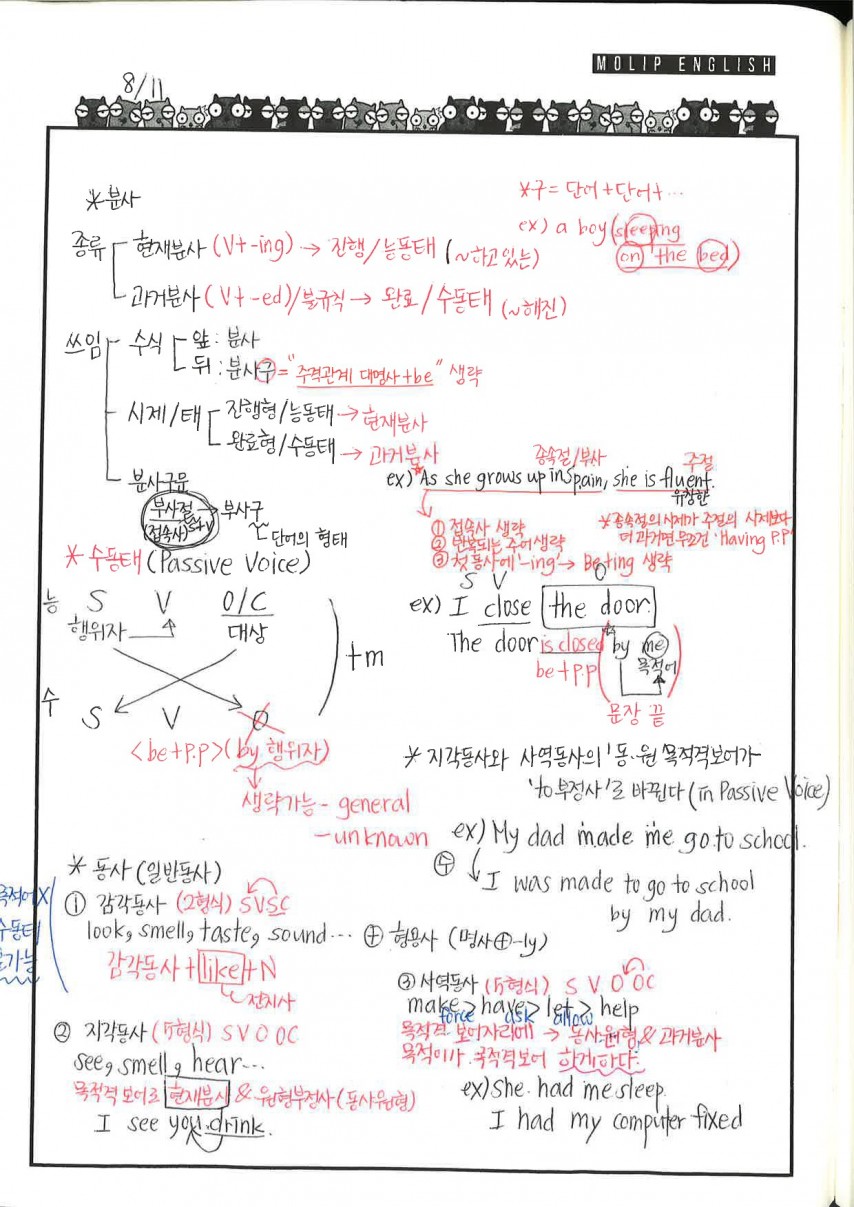 MOLIP ENGLISH
8/11
*분사
*구 = 단어+단어+…
ex) a boy (sleeping
on the bed)
종류 현재분사 (V+-ing) → 진행/능동태 (~하고있는)
과거분사 (V+-ed)/불규칙 → 완료/수동태 (~해진)
쓰임 수식 앞 : 분사
뒤 : 분사구 = "주격관계 대명사+be" 생략
시제/태 진행형/능동태 → 현재분사
완료형/수동태 → 과거분사
분사구문
부사절 → 부사구
(접속사) S+V
단어의 형태
종속절/부사 주절
ex) As she grows up in Spain, she is fluent.
유창한
① 접속사 생략
② 반복되는 주어 생략
③ 첫 동사에 '-ing' → Being 생략
*종속절의 시제가 주절의 시제보다
더 과거면 무조건 'Having P.P'
* 수동태 (Passive Voice)
능 S V O/C
행위자 대상
+m
수 S V O
<be+P.P> (by 행위자)
생략가능 - general
- unknown
S V O
ex) I close the door.
The door is closed by me
be+P.P 목적어
문장 끝
* 지각동사와 사역동사의 '동.원' 목적격보어가
'to부정사'로 바뀐다 (in Passive Voice)
ex) My dad made me go to school.
수 I was made to go to school
by my dad.
* 동사 (일반동사)
목적어X
수동태
불가능
① 감각동사 (2형식) SVSC
look, smell, taste, sound… + 형용사 (명사+-ly)
감각동사 + like + N
전치사
② 지각동사 (5형식) S V O OC
see, smell, hear…
목적격 보어로 현재분사 & 원형부정사 (동사원형)
I see you drink.
③ 사역동사 (5형식) S V O OC
make > have > let > help
force ask allow
목적격 보어자리에 → 동사원형 & 과거분사
목적어가 목적격보어 하게하다.
ex) She had me sleep.
I had my computer fixed